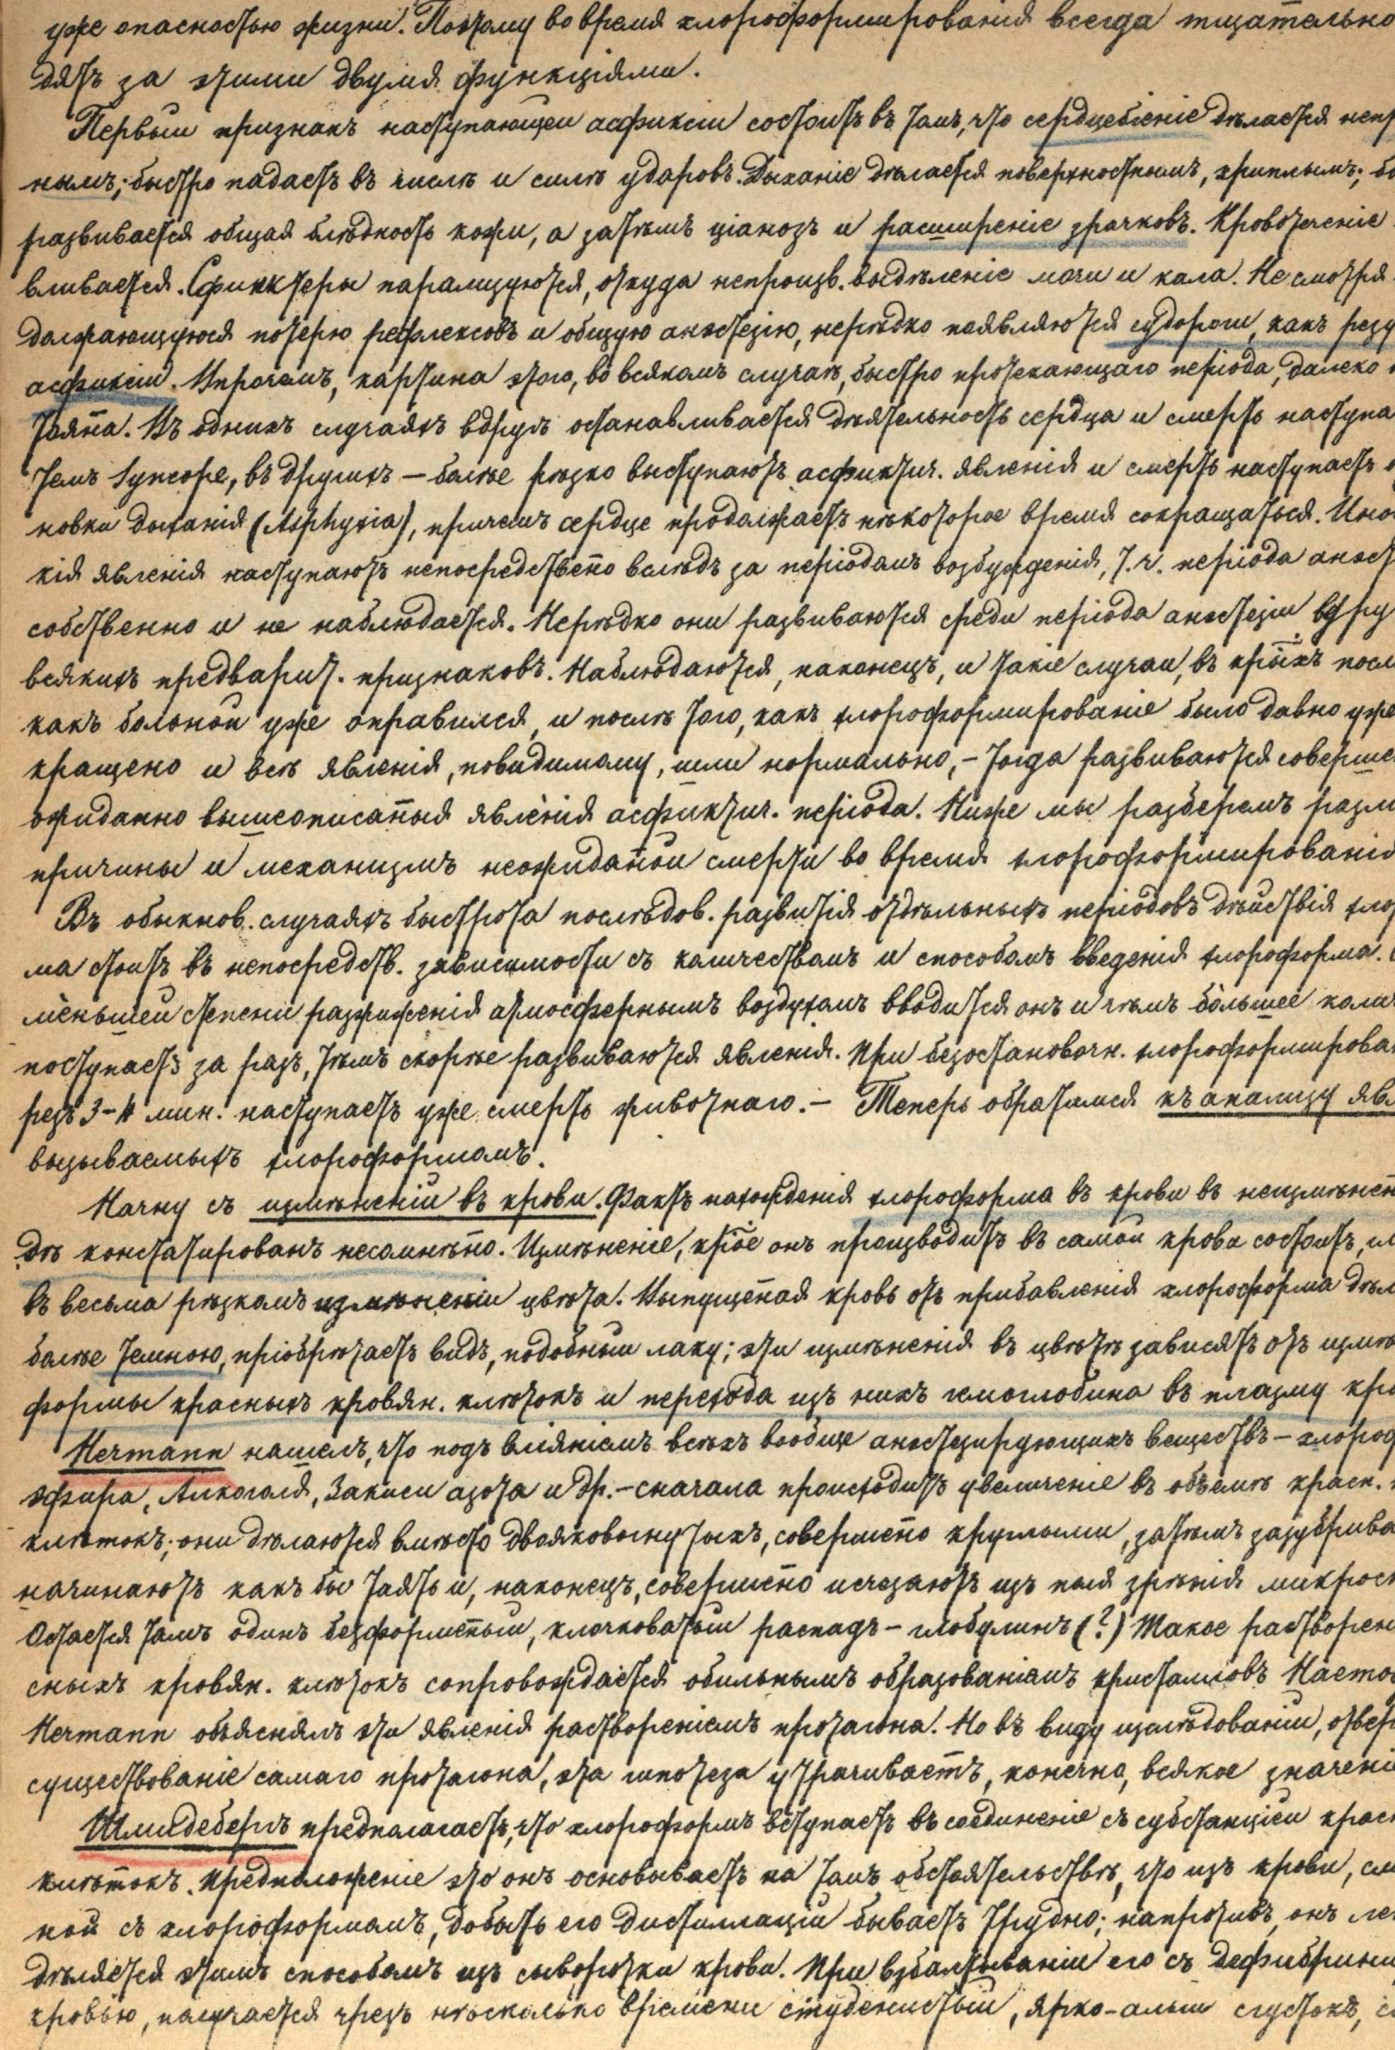 уже опасностью жизни. Поэтому во время хлороформированія всегда тщательно
дятъ за этими двумя функціями.
Первый признакъ наступающей асфиксіи состоитъ въ томъ, что сердцебіеніе дѣлается непр
нымъ; быстро падаетъ въ числѣ и силѣ ударовъ. Дыханіе дѣлается поверхностнымъ, хриплымъ; бы
развивается общая блѣдность кожи, а затѣмъ ціанозъ и расширеніе зрачковъ. Кровотеченіе
вливается. Сфинктеры парализуются, откуда непроизв. выдѣленіе мочи и кала. Не смотря
должающуюся потерю рефлексовъ и общую анэстезію, нерѣдко появляются судороги, какъ резу
асфиксіи. Впрочемъ, картина этого, во всякомъ случаѣ, быстро протекающаго періода, далеко н
тоян̅а. Въ однихъ случаяхъ вдругъ останавливается дѣятельность сердца и смерть наступа
темъ Syncope, въ другихъ — болѣе рѣзко выступаютъ асфиктич. явленія и смерть наступаетъ о
новки дыханія (Asphyxia), причемъ сердце продолжаетъ нѣкоторое время сокращаться. Иног
кія явленія наступаютъ непосредствен̅о вслѣдъ за періодомъ возбужденія, т. ч. періода анэст
собственно и не наблюдается. Нерѣдко они развиваются среди періода анэстезіи вдру
всякихъ предварит. признаковъ. Наблюдаются, наконецъ, и такіе случаи, въ кр̅ыхъ посл
какъ больной уже оправился, и послѣ того, какъ хлороформированіе было давно уже
кращено и всѣ явленія, повидимому, шли нормально, — тогда развиваются соверше
ожиданно вышеописан̅ыя явленія асфиктич. періода. Ниже мы разберемъ разли
причины и механизмъ неожидан̅ой смерти во время хлороформированія
Въ обыкнов. случаяхъ быстрота послѣдов. развитія отдѣльныхъ періодовъ дѣйствія хлор
ма стоитъ въ непосредств. зависимости съ количествомъ и способомъ введенія хлороформа.
ме́ньшей степени разжиженія атмосфернымъ воздухомъ вводится онъ и чѣмъ бо́льшее коли
поступаетъ за разъ, тѣмъ скорѣе развиваются явленія. При безостановочн. хлороформирова
резъ 3-4 мин. наступаетъ уже смерть животнаго. — Теперь обратимся къ анализу явл
вызываемыхъ хлороформомъ.
Начну съ измѣненій въ крови. Фактъ нахожденія хлороформа въ крови въ неизмѣнен̅
дѣ констатированъ несомнѣн̅о. Измѣненіе, кр̅ое онъ производитъ въ самой крови состоитъ,
въ весьма рѣзкомъ измѣненіи цвѣта. Выпущен̅ая кровь отъ прибавленія хлороформа дѣл
болѣе темною, пріобрѣтаетъ видъ, подобный лаку; эти измѣненія въ цвѣтѣ зависятъ отъ измѣ
формы красныхъ кровян. клѣтокъ и перехода изъ нихъ гемоглобина въ плазму кро
Hermann нашелъ, что подъ вліяніемъ всѣхъ вообще анэстезирующихъ веществъ — хлороф
эфира, Алкоголя, Закиси азота и др. — сначала происходитъ увеличеніе въ объемѣ красн.
клѣтокъ; они дѣлаются вмѣсто двояковогнутыхъ, совершен̅о круглыми, затѣмъ зазубрива
начинаютъ какъ бы таять и, наконецъ, совершен̅о исчезаютъ изъ поля зрѣнія микроск
Остается тамъ одинъ безформен̅ый, клочковатый распадъ — глобулинъ (?) Такое растворен
сныхъ кровян. клѣтокъ сопровождается обильнымъ образованіемъ кристалловъ Насто
Hermann объяснялъ эти явленія раствореніемъ протагона. Но въ виду изслѣдованій, отвер
существованіе самаго протагона, эта гипотеза утрачиваетъ, конечно, всякое значені
Шмидебергъ предполагаетъ, что хлороформъ вступаетъ въ соединеніе съ субстанціей крас
клѣтокъ. Предположеніе это онъ основываетъ на томъ обстоятельствѣ, что изъ крови, см
ной съ хлороформомъ, добыть его дистилляціи бываетъ трудно; напротивъ, онъ ле
дѣляется этимъ способомъ изъ сыворотки крови. При взбалтываніи его съ дефибрини
кровью, получается чрезъ нѣсколько времени студенистый, ярко-алый сгустокъ,